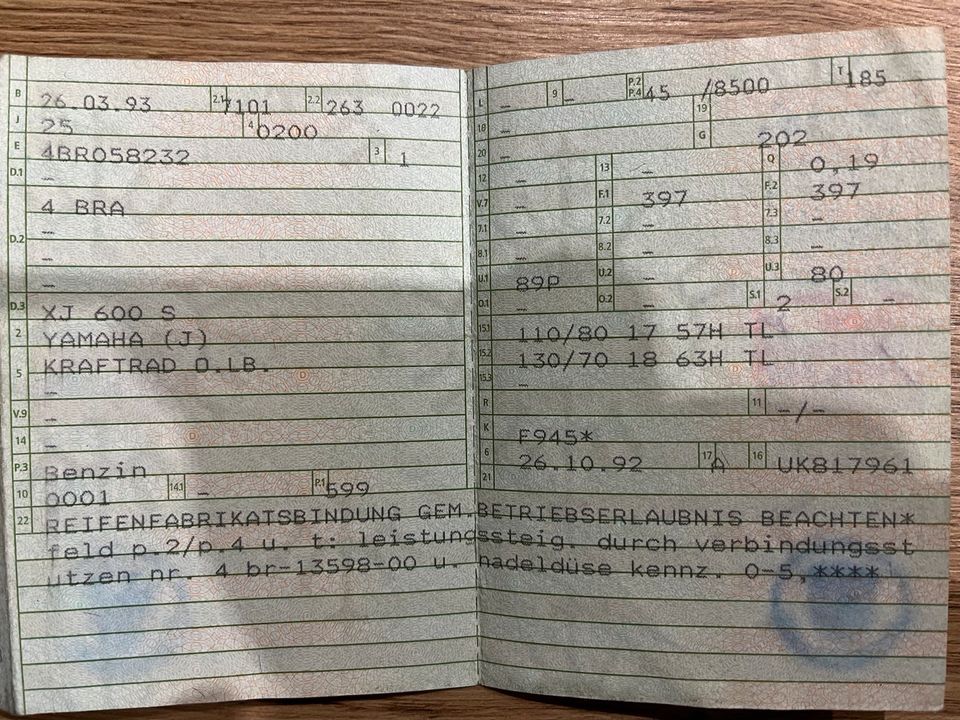 B 26.03.93 2.1 7101 2.2 263 0022
J 25 4 0200
E 4BR058232 3 1
D.1 –
4 BRA
D.2 –
–
–
D.3 XJ 600 S
2 YAMAHA (J)
5 KRAFTRAD O.LB.
–
V.9 –
14 –
P.3 Benzin
10 0001 14.1 – P.1 599
L – 9 – P.2 P.4 45 /8500 T 185
18 – 19
20 – G 202
12 – 13 – Q 0,19
V.7 – F.1 397 F.2 397
7.1 – 7.2 – 7.3 –
8.1 – 8.2 – 8.3 –
U.1 89P U.2 – U.3 80
O.1 – O.2 – S.1 2 S.2 –
15.1 110/80 17 57H TL
15.2 130/70 18 63H TL
15.3 –
R 11 –/–
K F945*
6 26.10.92 17 A 16 UK817961
21
22 REIFENFABRIKATSBINDUNG GEM.BETRIEBSERLAUBNIS BEACHTEN*
feld p.2/p.4 u. t: leistungssteig. durch verbindungsst
utzen nr. 4 br-13598-00 u. nadeldüse kennz. O-5,****